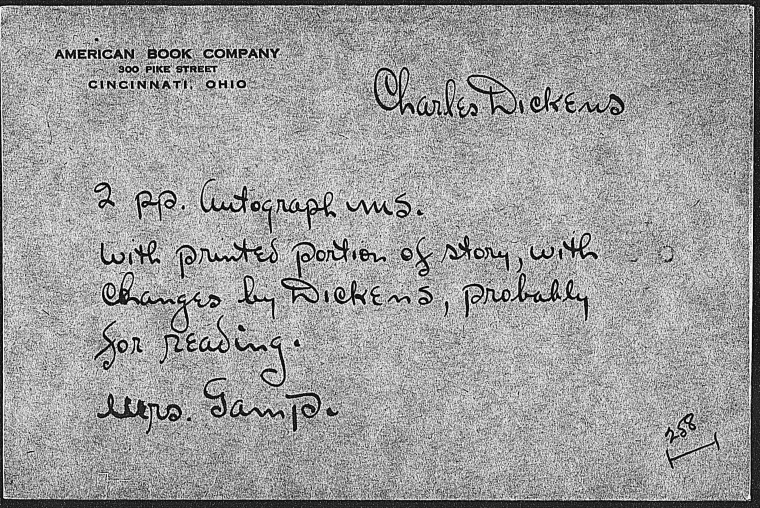 AMERICAN BOOK COMPANY
300 PIKE STREET
CINCINNATI, OHIO
Charles Dickens
2 pp. Autograph ms.
with printed portion of story, with
changes by Dickens, probably
for reading.
Mrs. Gamp.
258